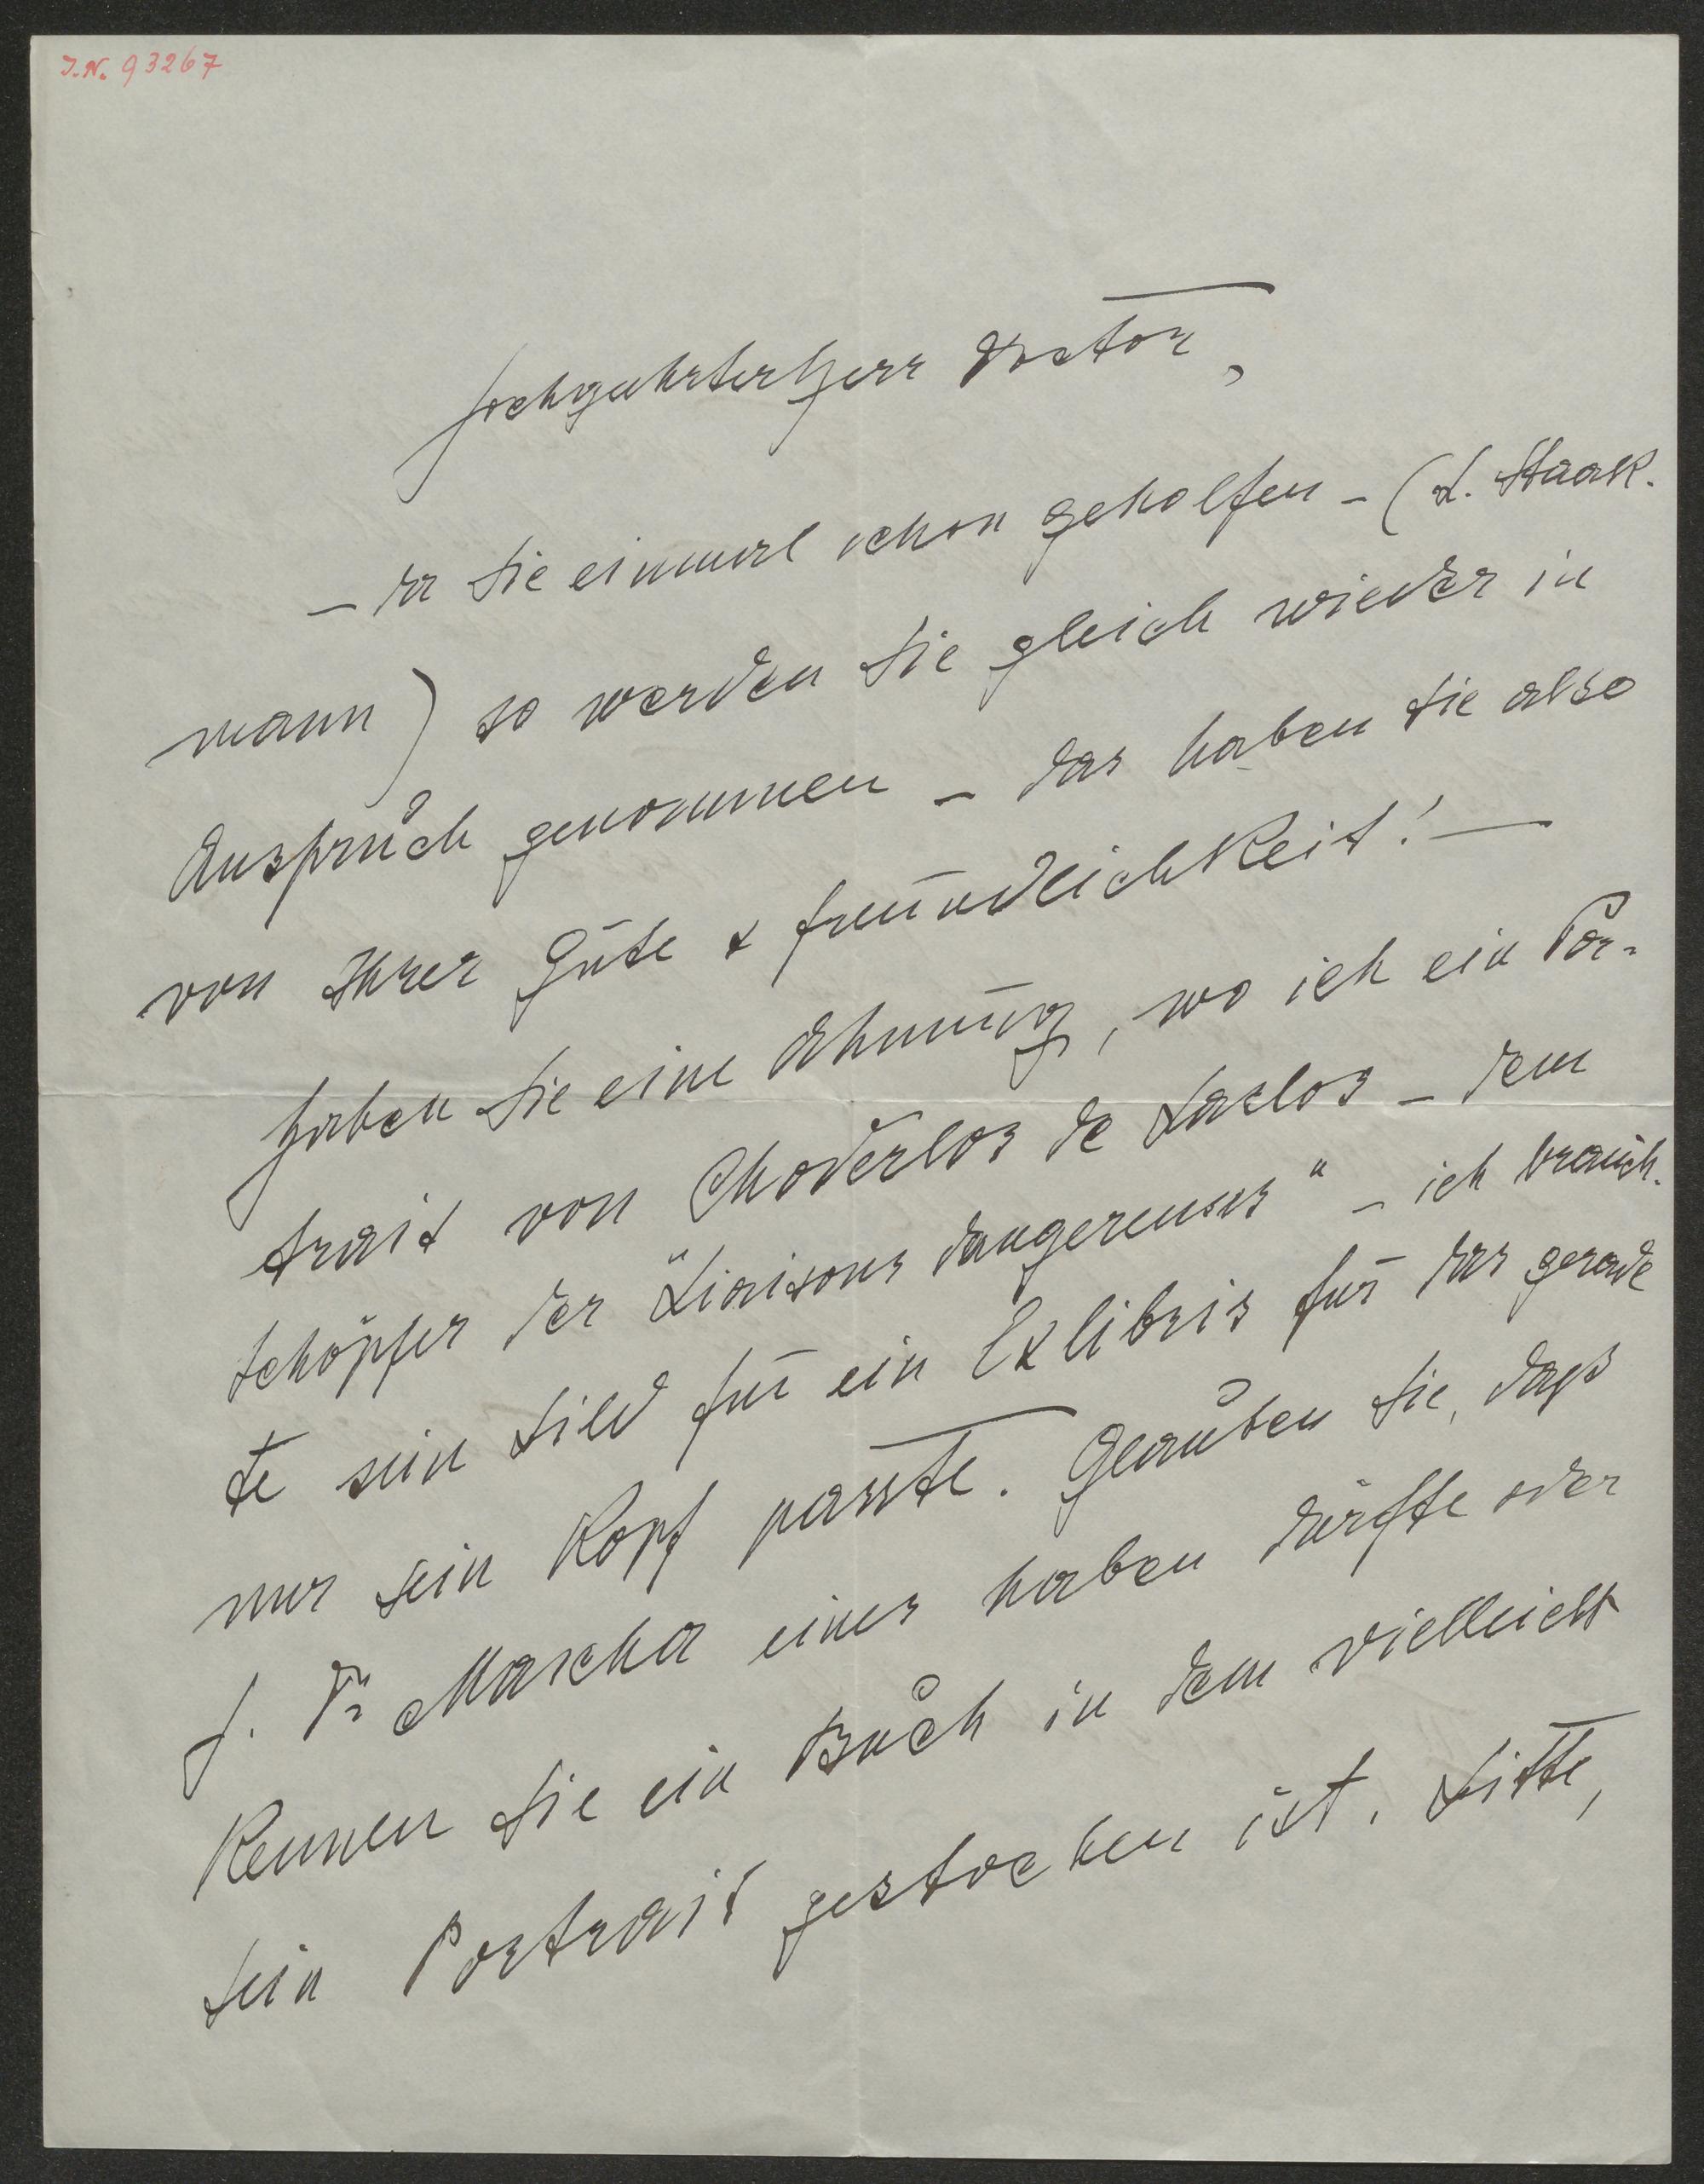 I.N. 93267
Hochgeehrter Herr Doctor,
– da Sie einmal schon geholfen – (L. Staak-
mann) so werden Sie gleich wieder in
Anspruch genommen – das haben Sie also
von Ihrer Güte & Freundlichkeit! –
Haben Sie eine Ahnung, wo ich ein Por-
trait von Choderlos de Laclos – dem
Schöpfer der "Liaisons dangereuses" – ich brauch-
te sein Bild für ein Exlibris für das gerade
nur sein Kopf passte. Glauben Sie, dass
H. Dr Mascha eines haben dürfte oder
kennen Sie ein Buch in dem vielleicht
sein Portrait gestochen ist. Bitte,